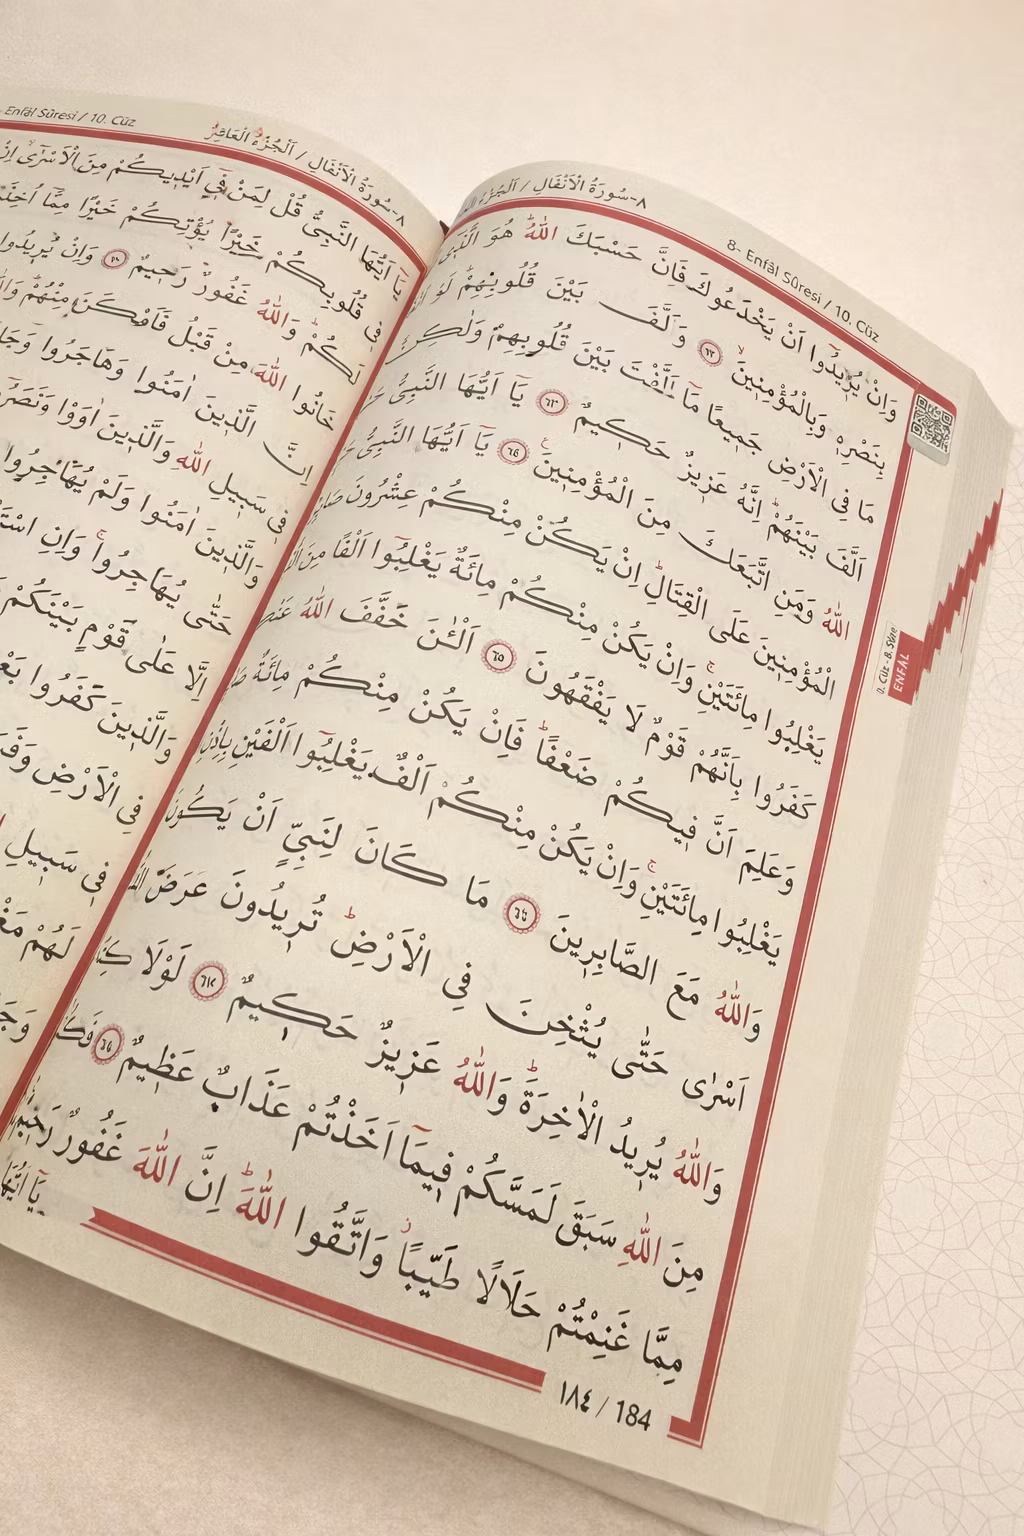 8- Enfâl Sûresi / 10. Cüz
٨-سُورَةُ الْاَنْفَالِ / اَلْجُزْءُ
وَاِنْ يُرِيدُٓوا اَنْ يَخْدَعُوكَ فَاِنَّ حَسْبَكَ اللّٰهُۜ هُوَ
بِنَصْرِهٖ وَبِالْمُؤْمِنِينَۙ ﴿٦٢﴾ وَاَلَّفَ بَيْنَ قُلُوبِهِمْۜ لَوْ
مَا فِي الْاَرْضِ جَمِيعًا مَٓا اَلَّفْتَ بَيْنَ قُلُوبِهِمْ وَلٰكِنَّ
اَلَّفَ بَيْنَهُمْۜ اِنَّهُ عَزِيزٌ حَكِيمٌ ﴿٦٣﴾ يَٓا اَيُّهَا النَّبِيُّ
اللّٰهُ وَمَنِ اتَّبَعَكَ مِنَ الْمُؤْمِنِينَ ﴿٦٤﴾ يَٓا اَيُّهَا النَّبِيُّ
الْمُؤْمِنِينَ عَلَى الْقِتَالِۜ اِنْ يَكُنْ مِنْكُمْ عِشْرُونَ
يَغْلِبُوا مِائَتَيْنِۚ وَاِنْ يَكُنْ مِنْكُمْ مِائَةٌ يَغْلِبُٓوا اَلْفًا مِنَ
كَفَرُوا بِاَنَّهُمْ قَوْمٌ لَا يَفْقَهُونَ ﴿٦٥﴾ اَلْـٰٔنَ خَفَّفَ اللّٰهُ
وَعَلِمَ اَنَّ فِيكُمْ ضَعْفًاۜ فَاِنْ يَكُنْ مِنْكُمْ مِائَةٌ
يَغْلِبُوا مِائَتَيْنِۚ وَاِنْ يَكُنْ مِنْكُمْ اَلْفٌ يَغْلِبُٓوا اَلْفَيْنِ بِاِذْنِ
وَاللّٰهُ مَعَ الصَّابِرِينَ ﴿٦٦﴾ مَا كَانَ لِنَبِيٍّ اَنْ يَكُونَ
اَسْرٰى حَتّٰى يُثْخِنَ فِي الْاَرْضِۜ تُرِيدُونَ عَرَضَ
وَاللّٰهُ يُرِيدُ الْاٰخِرَةَۜ وَاللّٰهُ عَزِيزٌ حَكِيمٌ ﴿٦٧﴾ لَوْلَا
مِنَ اللّٰهِ سَبَقَ لَمَسَّكُمْ فِيمَٓا اَخَذْتُمْ عَذَابٌ عَظِيمٌ
مِمَّا غَنِمْتُمْ حَلَالًا طَيِّبًا وَاتَّقُوا اللّٰهَۜ اِنَّ اللّٰهَ غَفُورٌ رَحِيمٌ
يَٓا اَيُّهَا
١٨٤ / 184
ENFÂL
Enfâl Sûresi / 10. Cüz
٨-سُورَةُ الْاَنْفَالِ / اَلْجُزْءُ الْعَاشِرُ
اَيُّهَا النَّبِيُّ قُلْ لِمَنْ فِٓي اَيْدِيكُمْ مِنَ الْاَسْرٰٓى
فِي قُلُوبِكُمْ خَيْرًا يُؤْتِكُمْ خَيْرًا مِمَّٓا
لَكُمْۜ وَاللّٰهُ غَفُورٌ رَحِيمٌ ﴿٧٠﴾ وَاِنْ يُرِيدُوا
خَانُوا اللّٰهَ مِنْ قَبْلُ فَاَمْكَنَ مِنْهُمْۜ
اِنَّ الَّذِينَ اٰمَنُوا وَهَاجَرُوا
فِي سَبِيلِ اللّٰهِ وَالَّذِينَ اٰوَوْا
وَالَّذِينَ اٰمَنُوا وَلَمْ يُهَاجِرُوا
حَتّٰى يُهَاجِرُواۚ وَاِنِ
اِلَّا عَلٰى قَوْمٍ بَيْنَكُمْ
وَالَّذِينَ كَفَرُوا
فِي الْاَرْضِ
فِي سَبِيلِ
لَهُمْ